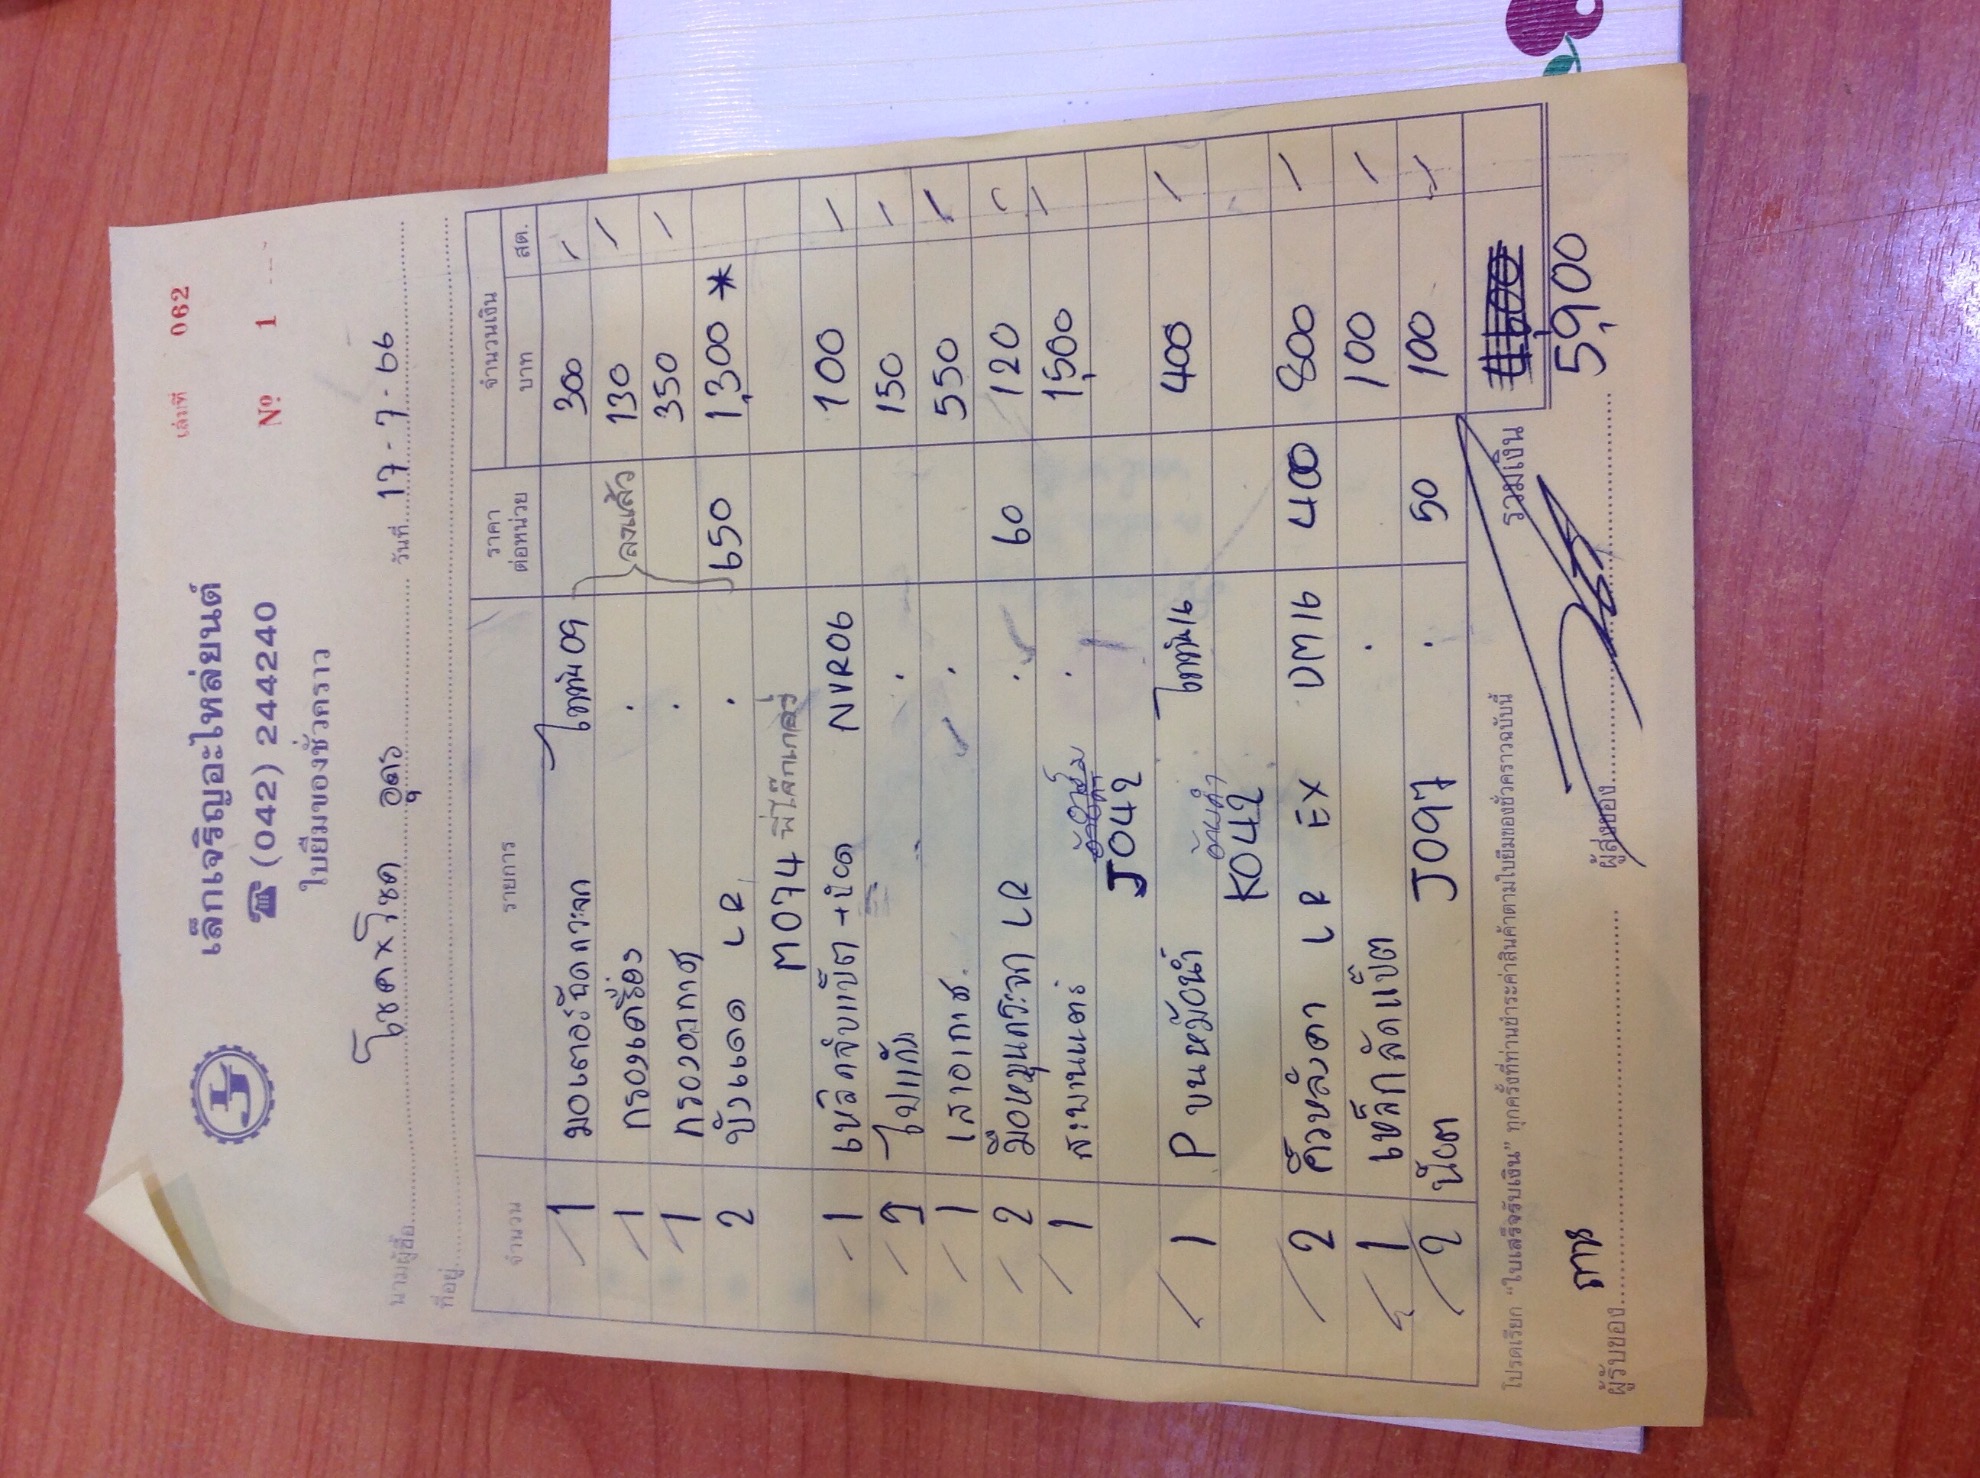 เล่มที่ 062
Nº 1
เล็กเจริญอะไหล่ยนต์
☎ (042) 244240
ใบยืมของชั่วคราว
นามผู้ซื้อ โชคxโชค อุดร วันที่ 17-7-66
ที่อยู่
จำนวน รายการ ราคาต่อหน่วย จำนวนเงิน บาท สต.
1 มอเตอร์ฉีดกระจก ไททัน 09 300
1 กรองเครื่อง 130
ลงแล้ว
1 กรองอากาศ 350
2 บังแดด LR 650 1,300 *
M074
1 เหล็กจับแป๊ต+น๊อต NVR06 100
2 150
1 เสาอากาศ 550
2 มือหมุนกระจก LR 60 120
1 สะพานแตร 1,500
J042
1 P บนหม้อน้ำ ไททัน 16 400
K042
2 คิ้วหลังคา LR EX DM16 400 800
1 เหล็กลัดแป๊ต 100
2 น๊อต J097 50 100
รวมเงิน 5,900
โปรดเรียก "ใบเสร็จรับเงิน" ทุกครั้งที่ท่านชำระค่าสินค้าตามใบยืมของชั่วคราวฉบับนี้
ผู้รับของ ผู้ส่งของ